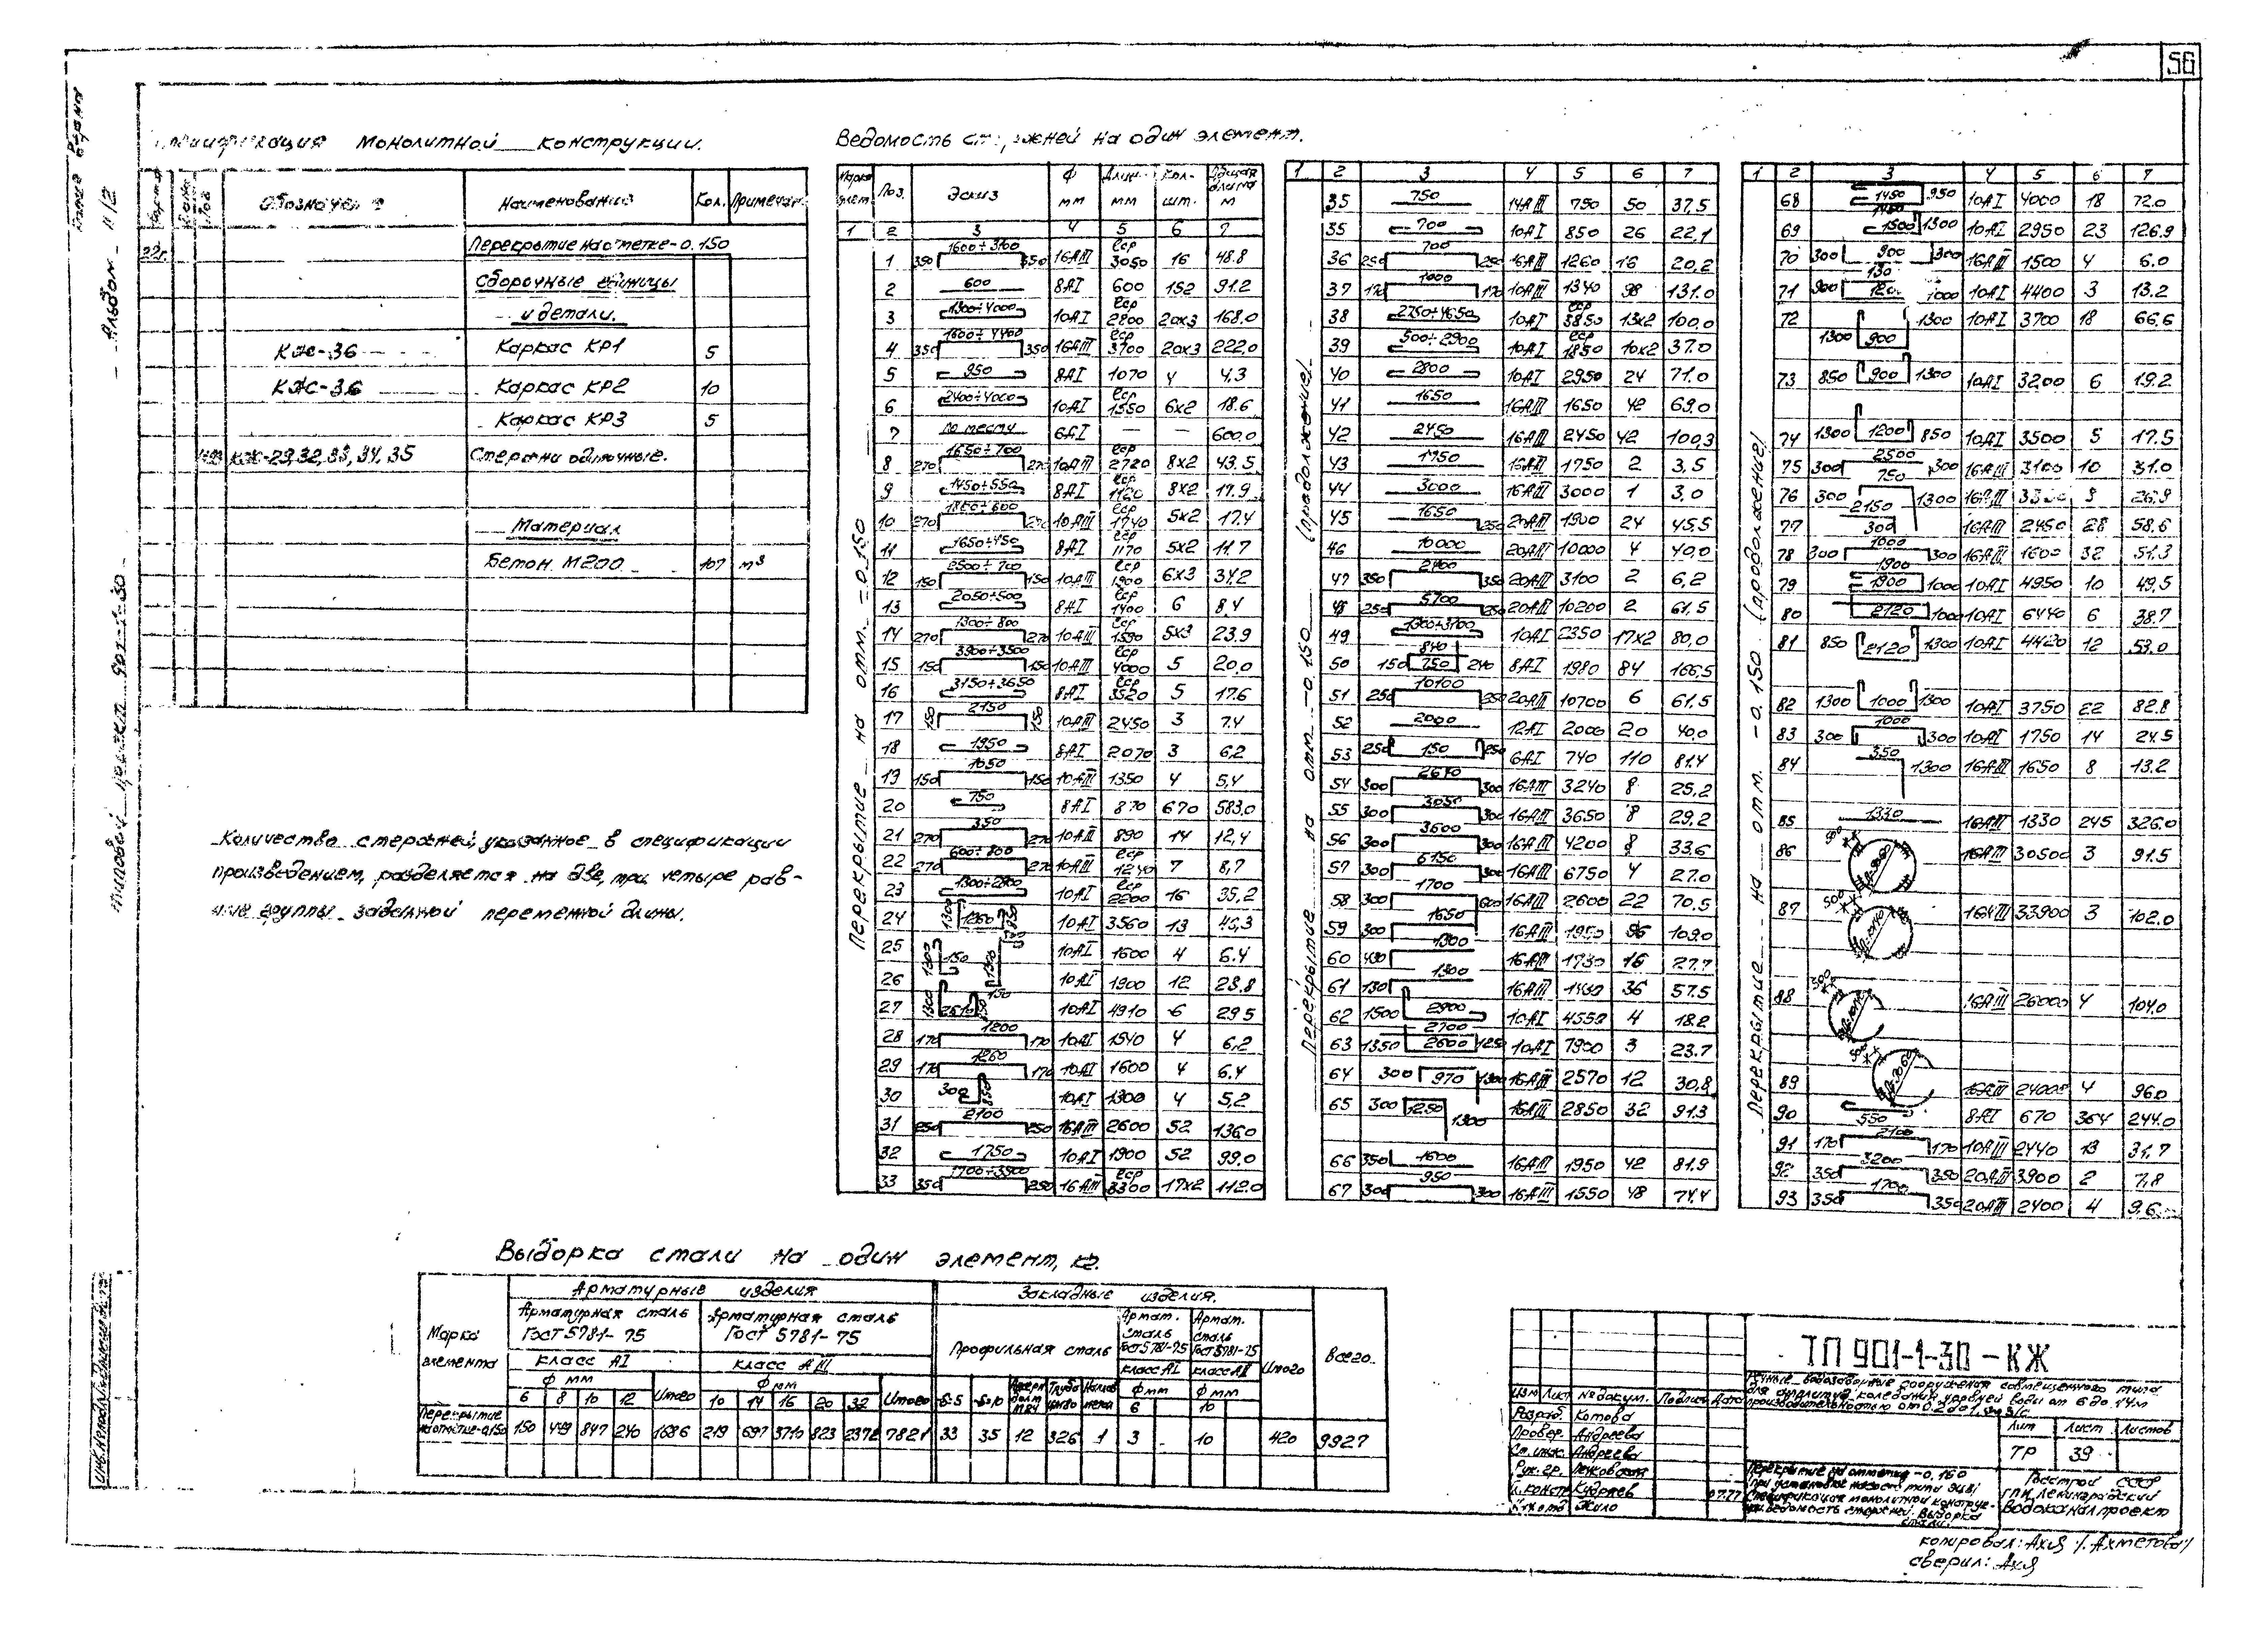 56
Альбом II/2
Типовой проект 901-1-30
Спецификация монолитной конструкции.
Обозначение Наименование Кол. Примечан.
Перекрытие на отметке -0.150
Сборочные единицы
и детали.
КЖ-36 Каркас КР1 5
КЖ-36 Каркас КР2 10
Каркас КР3 5
КЖ-29,32,33,34,35 Стержни одиночные.
Материал
Бетон М200 107 м³
Количество стержней, указанное в спецификации
произведением, разделяется на две, три, четыре рав-
ные группы заданной переменной длины.
Ведомость стержней на один элемент.
Марка элем. Поз. Эскиз Ф мм Длина мм Кол. шт. Общая длина м
1 2 3 4 5 6 7
Перекрытие на отм. -0.150
1 350 1600÷3100 350 16АIII ℓср 3050 16 48.8
2 600 8АI 600 152 91.2
3 1300÷4000 10АI ℓср 2800 20х3 168.0
4 350 1600÷4400 350 16АIII ℓср 3700 20х3 222,0
5 950 8АI 1070 4 4,3
6 2400÷4000 10АI ℓср 1550 6х2 18.6
7 по месту 6АI — — 600.0
8 270 1650÷700 270 10АIII ℓср 2720 8х2 43.5
9 1450÷550 8АI ℓср 1120 8х2 17.9
10 270 270 10АIII ℓср 1740 5х2 17.4
11 1650÷450 8АI ℓср 1170 5х2 11.7
12 150 2500÷700 150 10АIII ℓср 1900 6х3 34.2
13 2050÷500 8АI ℓср 1400 6 8,4
14 270 1300÷800 270 10АIII ℓср 1590 5х3 23.9
15 150 3900÷3500 150 10АIII ℓср 4000 5 20,0
16 3150÷3650 8АI ℓср 3520 5 17.6
17 150 2150 150 10АIII 2450 3 7.4
18 1950 8АI 2070 3 6,2
19 150 1050 150 10АIII 1350 4 5,4
20 750 8АI 870 670 583.0
21 270 350 270 10АIII 890 14 12,4
22 270 600÷800 270 10АIII ℓср 1240 7 8,7
23 1300÷2800 10АI ℓср 2200 16 35,2
24 1300 1260 850 10АI 3560 13 46,3
25 1300 150 10АI 1600 4 6.4
26 1300 150 10АI 1900 12 23,8
27 1300 2510 10АI 4910 6 29.5
28 170 1200 170 10АI 1540 4 6,2
29 170 1260 170 10АI 1600 4 6.4
30 300 850 10АI 1300 4 5,2
31 250 2100 250 16АIII 2600 52 136.0
32 1750 10АI 1900 52 99.0
33 350 1700÷3900 250 16АIII ℓср 3300 17х2 112.0
1 2 3 4 5 6 7
Перекрытие на отм. -0.150 (продолжение)
35 750 14АIII 750 50 37,5
35 700 10АI 850 26 22,1
36 250 700 250 16АIII 1260 16 20,2
37 170 1000 170 10АIII 1340 98 131.0
38 2750÷4650 10АI ℓср 3850 13х2 100,0
39 500÷2900 10АI ℓср 1850 10х2 37.0
40 2800 10АI 2950 24 71.0
41 1650 16АIII 1650 42 69.0
42 2450 16АIII 2450 42 100,3
43 1750 16АIII 1750 2 3,5
44 3000 16АIII 3000 1 3,0
45 1650 250 20АIII 1900 24 45.5
46 10000 20АIII 10000 4 40,0
47 350 2400 350 20АIII 3100 2 6,2
48 250 9700 250 20АIII 10200 2 61.5
49 1300÷3700 10АI 2350 17х2 80,0
50 150 840 750 240 8АI 1980 84 166,5
51 250 10100 250 20АIII 10700 6 61.5
52 2000 12АI 2000 20 40,0
53 250 150 250 6АI 740 110 81.4
54 300 2640 300 16АIII 3240 8 25,2
55 300 3050 300 16АIII 3650 8 29.2
56 300 3600 300 16АIII 4200 8 33.6
57 300 6150 300 16АIII 6750 4 27.0
58 300 1700 600 16АIII 2600 22 70.5
59 300 1650 16АIII 1950 56 109.0
60 430 1300 16АIII 1730 16 27.7
61 130 1300 16АIII 1430 36 57.5
62 1500 2900 10АI 4550 4 18.2
63 1350 2700 2600 1250 10АI 7900 3 23.7
64 300 970 1300 16АIII 2570 12 30,8
65 300 1250 1300 16АIII 2850 32 91.3
66 350 1600 16АIII 1950 42 81.9
67 300 950 300 16АIII 1550 48 74.4
1 2 3 4 5 6 7
Перекрытие на отм. -0.150 (продолжение)
68 1450 950 10АI 4000 18 72.0
69 1450 1500 1300 10АI 2950 23 126.9
70 300 900 300 16АIII 1500 4 6.0
71 900 130 1000 10АI 4400 3 13.2
72 1300 900 1300 10АI 3700 18 66.6
73 850 900 1300 10АI 3200 6 19.2
74 1300 1200 850 10АI 3500 5 17.5
75 300 2500 300 16АIII 3100 10 31.0
76 300 750 1300 16АIII 26.9
77 2150 300 16АIII 2450 28 58.6
78 300 1000 300 16АIII 1600 32 51.3
79 1900 1900 1000 10АI 4950 10 49,5
80 2120 1000 10АI 6440 6 38.7
81 850 2120 1300 10АI 4420 12 53.0
82 1300 1000 1300 10АI 3750 22 82.8
83 300 1000 300 10АI 1750 14 24.5
84 350 1300 16АIII 1650 8 13.2
85 1330 16АIII 1330 245 326.0
86 16АIII 30500 3 91.5
87 500 16АIII 33900 3 102.0
88 500 16АIII 26000 4 104.0
89 500 16АIII 24000 4 96.0
90 550 8АI 670 364 244.0
91 170 2100 170 10АIII 2440 13 31,7
92 350 3200 350 20АIII 3900 2 7,8
93 350 1700 350 20АIII 2400 4 9.6
Выборка стали на один элемент, кг.
Марка элемента Арматурные изделия Закладные изделия. Всего.
Арматурная сталь ГОСТ 5781-75 Арматурная сталь ГОСТ 5781-75 Профильная сталь Армат. сталь ГОСТ 5781-75 Армат. сталь ГОСТ 5781-75 Итого
класс АI класс АIII класс АI класс АII
Ф мм Ф мм Ф мм Ф мм
6 8 10 12 Итого 10 14 16 20 32 Итого δ=5 δ=10 6 10
Перекрытие на отметке -0.150 150 449 847 240 1686 219 697 3710 823 2372 7821 33 35 12 326 1 3 10 420 9927
ТП 901-1-30-КЖ
Речные водозаборные сооружения совмещенного типа
для амплитуд колебания уровней воды от 6 до 14м
производительностью от 0.2 до 1,0 м3/с.
Изм Лист № докум. Подпись Дата
Разраб. Котова
Провер. Андреева
Ст. инж. Андреева
Рук. гр.
Н. конст. Кудряев 07.77
Нач. отд. Жило
Лит Лист Листов
ТР 39
Перекрытие на отметке -0,150
при установке насоса типа ЭЦВ;
Спецификация монолитной конструк-
ции. Ведомость стержней. Выборка
стали.
Госстрой СССР
ГПИ Ленинградский
Водоканалпроект
копировал: (Ахметова)
сверил: